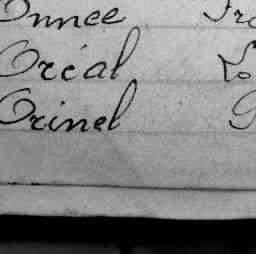 Onnee
Oréal
Orinel